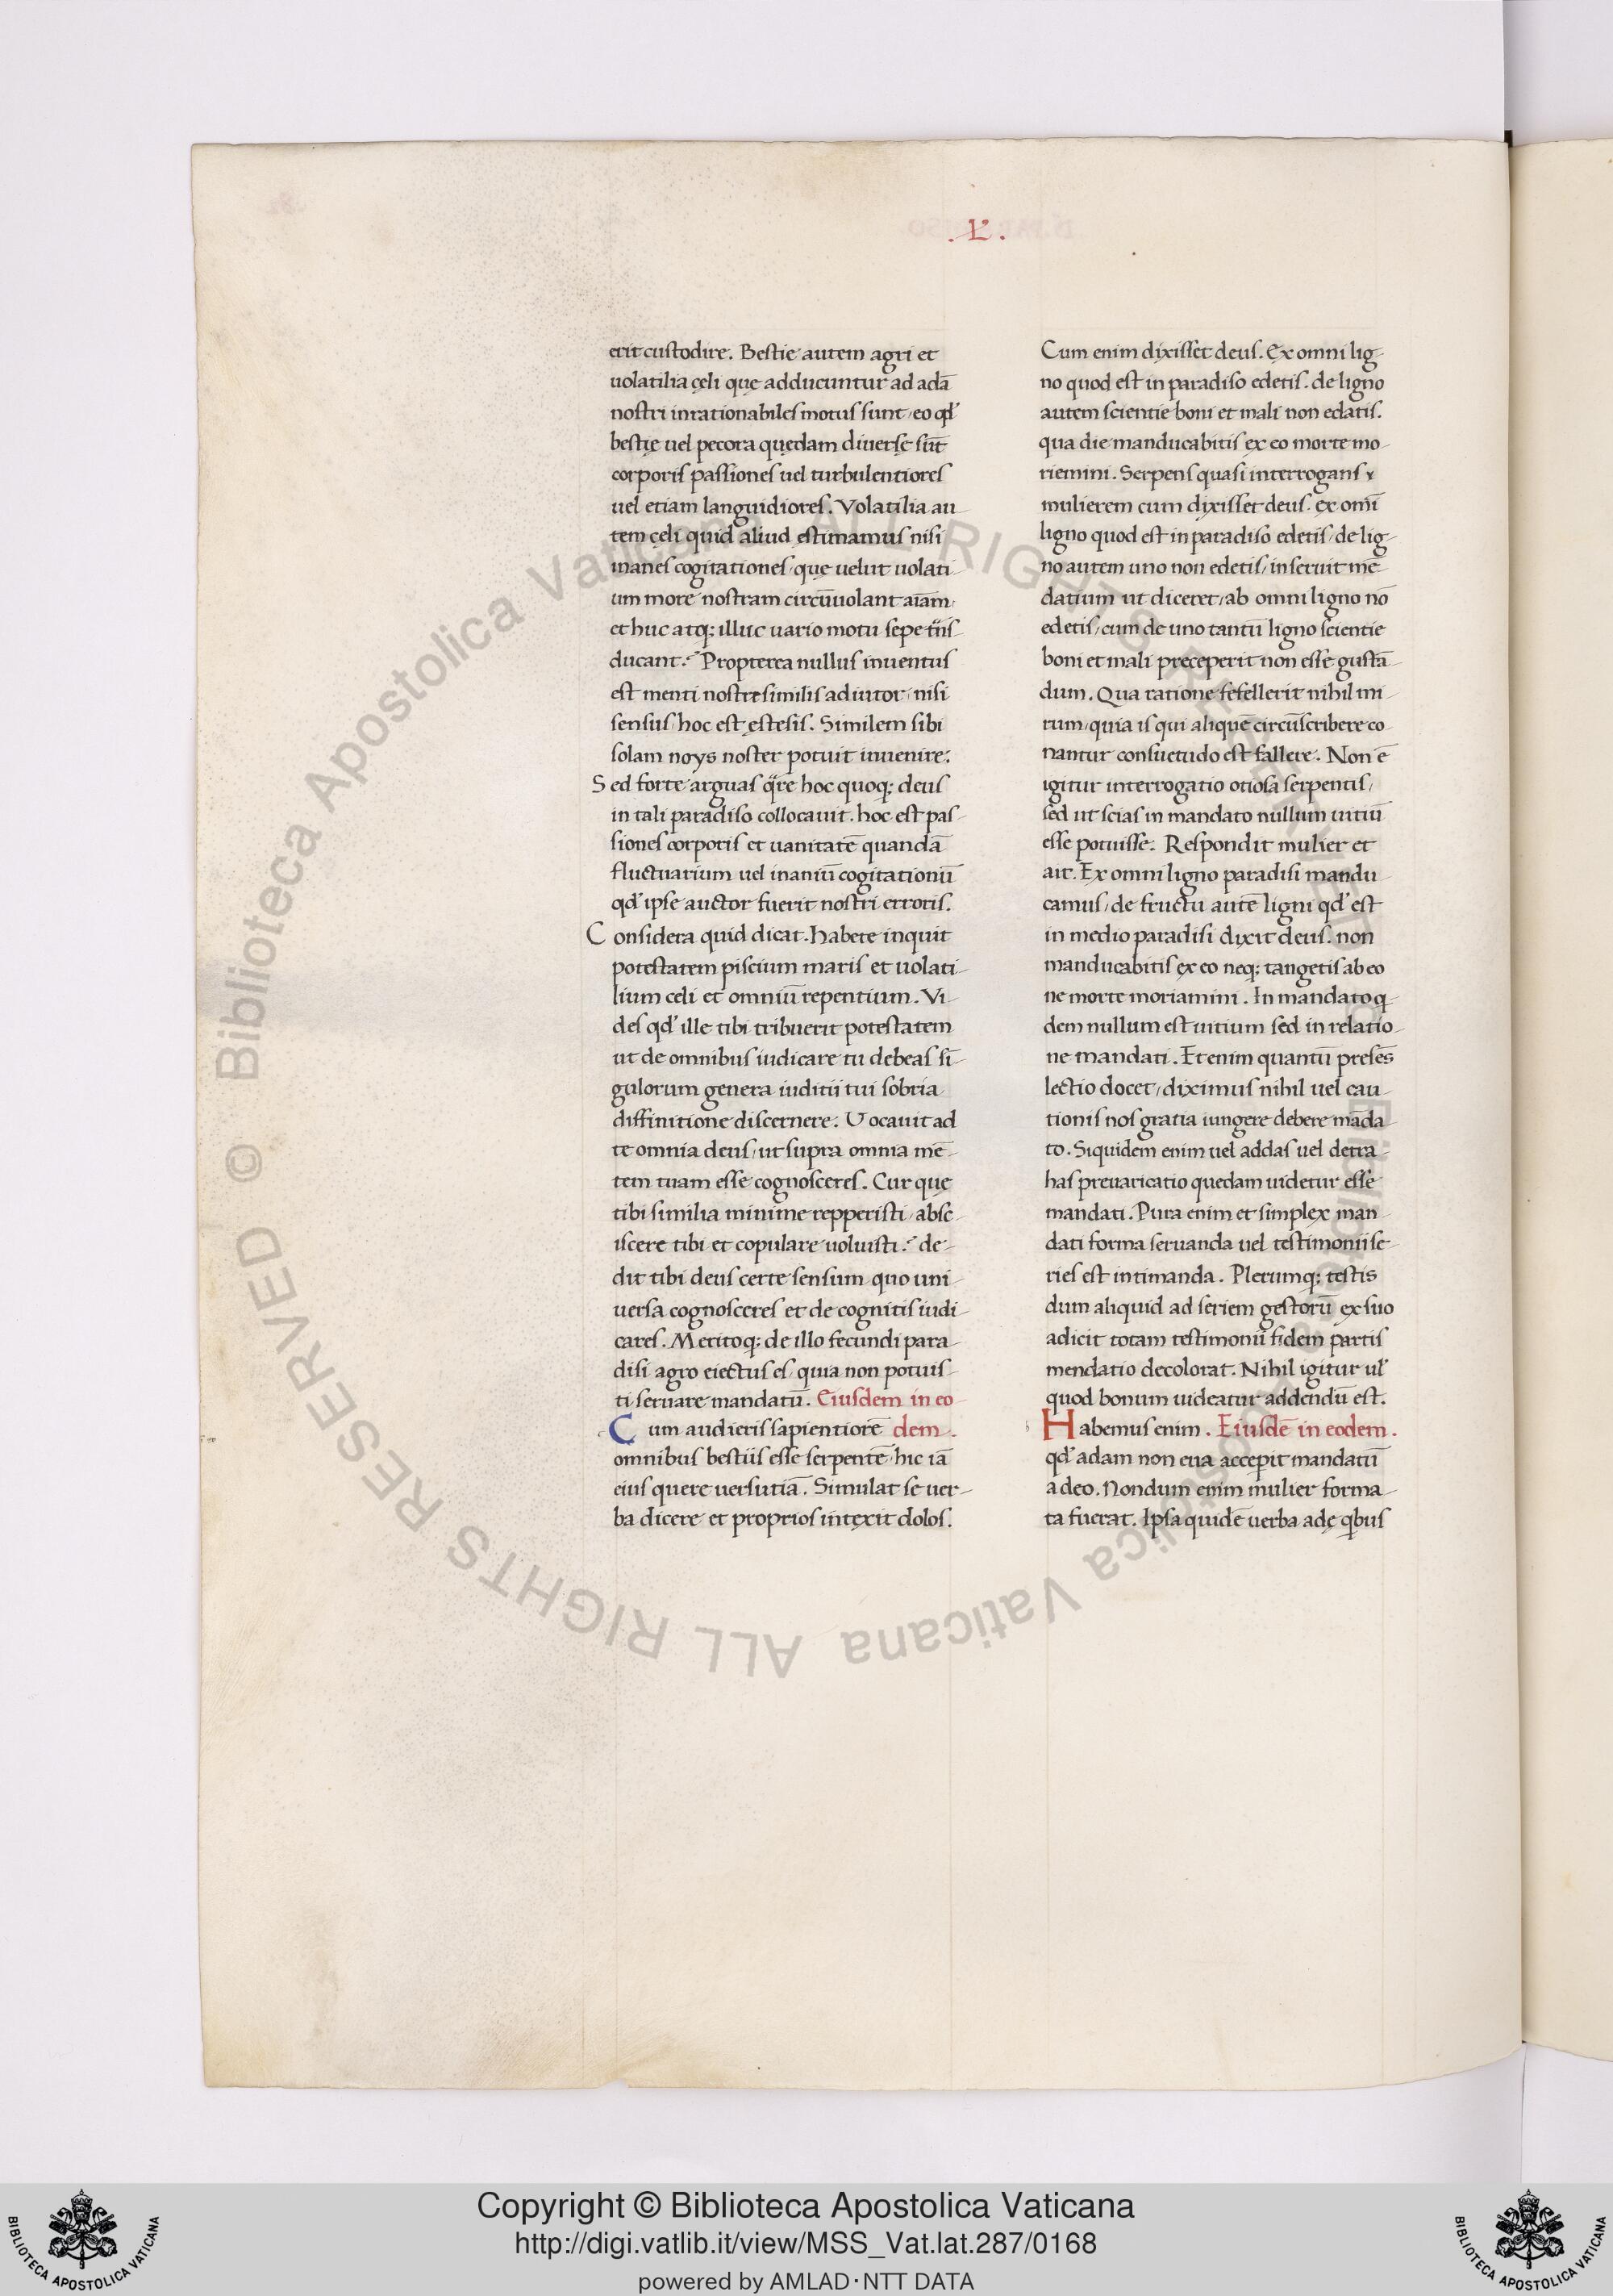 .L.
erit custodire. Bestie autem agri et
uolatilia cęli quę adducuntur ad adā
nostri inrationabiles motus sunt, eo qđ
bestię uel pecora quędam diuersę sūt
corporis passiones uel turbulentiores
uel etiam languidiores. Volatilia au-
tem cęli quid aliud ęstimamus nisi
inanes cogitationes, quę uelut uolati-
um more nostram circūuolant aīam,
et huc atq; illuc uario motu sepe trās-
ducant? Propterea nullus inuentus
est menti nostrę similis adiutor, nisi
sensus, hoc est ęstesis. Similem sibi
solam noys noster potuit inuenire.
Sed forte arguas qre hoc quoq; deus
in tali paradiso collocauit. hoc est pas-
siones corporis et uanitatē quandā
fluctuarium uel inaniū cogitationū
qđ ipse auctor fuerit nostri erroris.
Considera quid dicat. Habete inquit
potestatem piscium maris et uolati-
lium celi et omniū repentium. Vi-
des qđ ille tibi tribuerit potestatem
ut de omnibus iudicare tu debeas sī-
gulorum genera iuditii tui sobria
diffinitione discernere. Vocauit ad
te omnia deus, ut supra omnia mē-
tem tuam esse cognosceres. Cur quę
tibi similia minime repperisti, absc-
iscere tibi et copulare uoluisti? de-
dit tibi deus certe sensum quo uni-
uersa cognosceres et de cognitis iudi-
cares. Meritoq; de illo fecundi para-
disi agro eiectus es, quia non potuis-
ti seruare mandatū. Eiusdem in eo-
Cum audieris sapientiorē dem.
omnibus bestiis esse serpentē, hic iā
eius quere uersutiā. Simulat se uer-
ba dicere et proprios intexit dolos.
Cum enim dixisset deus. Ex omni lig-
no quod est in paradiso edetis. de ligno
autem scientie boni et mali non edatis.
qua die manducabitis ex eo morte mo-
riemini. Serpens quasi interrogans
mulierem cum dixisset deus. ex omī
ligno quod est in paradiso edetis, de lig-
no autem uno non edetis, inseruit mē-
datium ut diceret, ab omni ligno nō
edetis, cum de uno tantū ligno scientie
boni et mali preceperit non esse gustā-
dum. Qua ratione fefellerit nihil mi-
rum, quia is qui aliquē circūscribere co-
nantur consuetudo est fallere. Non ē
igitur interrogatio otiosa serpentis,
sed ut scias in mandato nullum uitiū
esse potuisse. Respondit mulier et
ait. Ex omni ligno paradisi mandu-
camus, de fructu autē ligni qđ est
in medio paradisi dixit deus. non
manducabitis ex eo neq; tangetis ab eo
ne morte moriamini. In mandato q-
dem nullum est uitium sed in relatio-
ne mandati. Etenim quantū presēs
lectio docet, diximus nihil uel cau-
tionis nos gratia iungere debere māda-
to. Siquidem enim uel addas uel detra-
has preuaricatio quedam uidetur esse
mandati. Pura enim et simplex man-
dati forma seruanda uel testimonii se-
ries est intimanda. Plerumq; testis
dum aliquid ad seriem gestorū ex suo
adicit totam testimonii fidem partis
mendatio decolorat. Nihil igitur ul'
quod bonum uideatur addendū est.
Habemus enim. Eiusdē in eodem.
qđ adam non eua accepit mandatū
a deo. Nondum enim mulier forma-
ta fuerat. Ipsa quidē uerba adę qbus
© Biblioteca Apostolica Vaticana ALL RIGHTS RESERVED
© Biblioteca Apostolica Vaticana ALL RIGHTS RESERVED
Copyright © Biblioteca Apostolica Vaticana
http://digi.vatlib.it/view/MSS_Vat.lat.287/0168
powered by AMLAD·NTT DATA
BIBLIOTECA APOSTOLICA VATICANA
BIBLIOTECA APOSTOLICA VATICANA